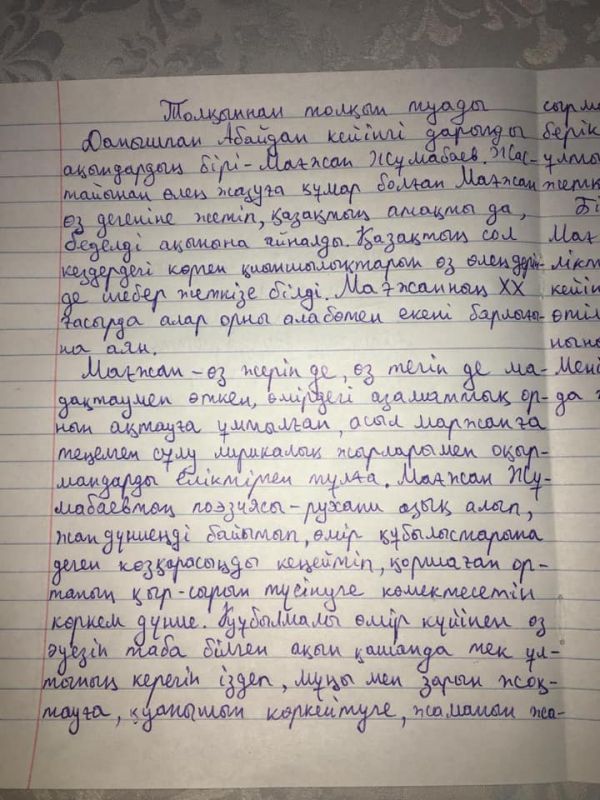 Толқыннан толқын туады
Данышпан Абайдан кейінгі дарынды
ақындардың бірі - Мағжан Жұмабаев. Жас-
тайынан өлең жазуға құмар болған Мағжан
өз дегеніне жетіп, қазақтың атақты да,
беделді ақынына айналды. Қазақтың сол
кездердегі көрген қиыншылықтарын өз өлеңдерін-
де шебер жеткізе білді. Мағжанның XX
ғасырда алар орны алабөтен екені барлығы-
на аян.
Мағжан - өз жерін де, өз тегін де ма-
дақтаумен өткен, өмірдегі азаматтық ор-
нын ақтауға ұмтылған, асыл маржанға
теңемен сұлу лирикалық жырларымен оқыр-
мандарды еліктірген тұлға. Мағжан Жұ-
мабаевтың поэзиясы - рухани азық алып,
жан дүниеңді байытып, өмір құбылыстарына
деген көзқарасыңды кеңейтіп, қоршаған ор-
таның қыр-сырын түсінуге көмектесетін
көркем дүние. Құбылмалы өмір күйінен өз
әуезін таба білген ақын қашанда тек ұл-
тының керегін іздеп, мұңы мен зарын жоқ-
тауға, қуанышын көркейтуге, жаманын жа-
сырма
берік
ұлтты
жетк
Бі
Мағ
лікт
кейін
өтіл
ның
Мені
да